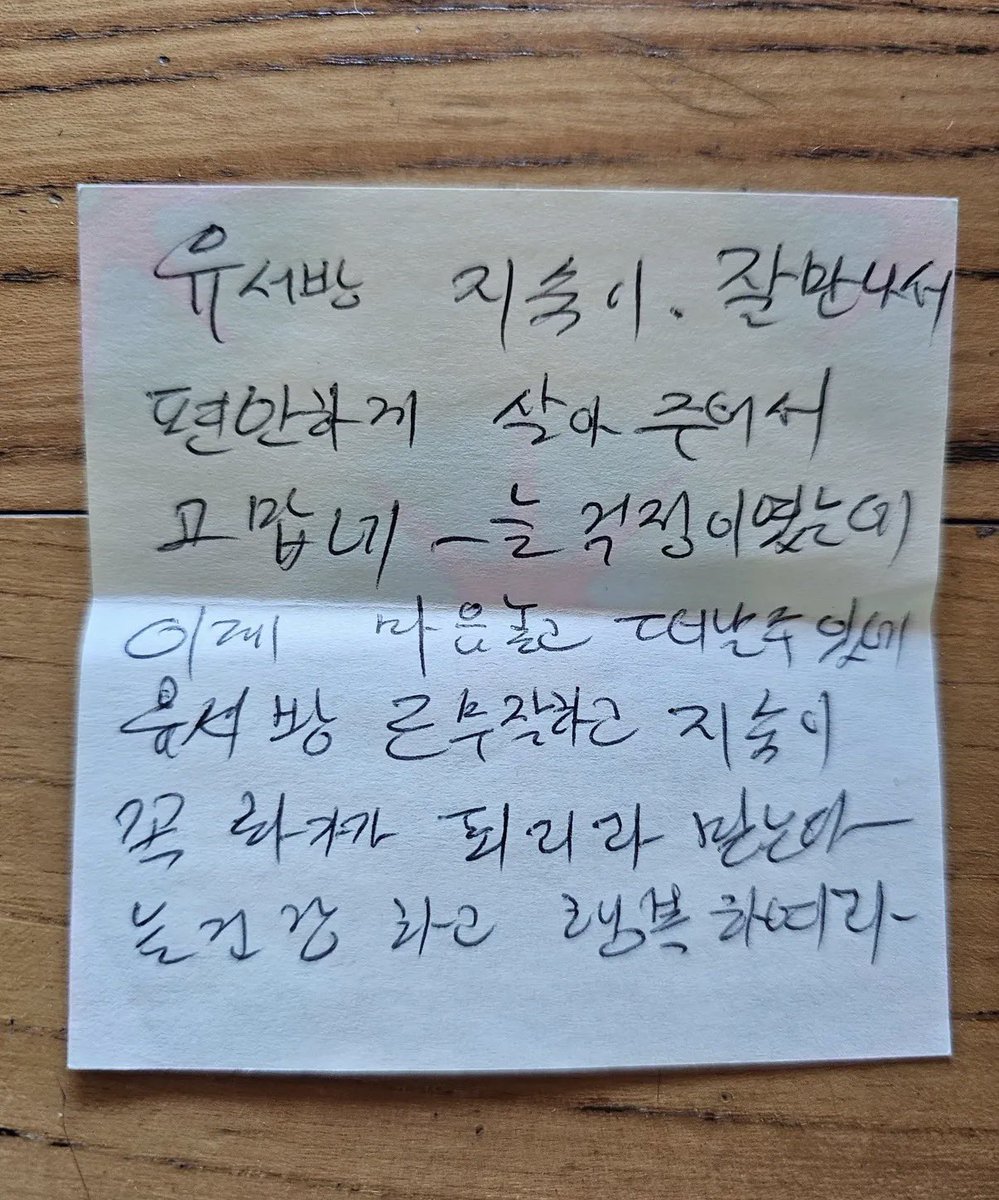 유서방 지숙이. 잘만나서
편안하게 살아 주어서
고맙네 - 늘 걱정이였는데
이제 마음놓고 떠날수 있네
유서방 근무잘하고 지숙이
꼭 화가가 되리라 믿는다-
늘건강 하고 행복하여라-